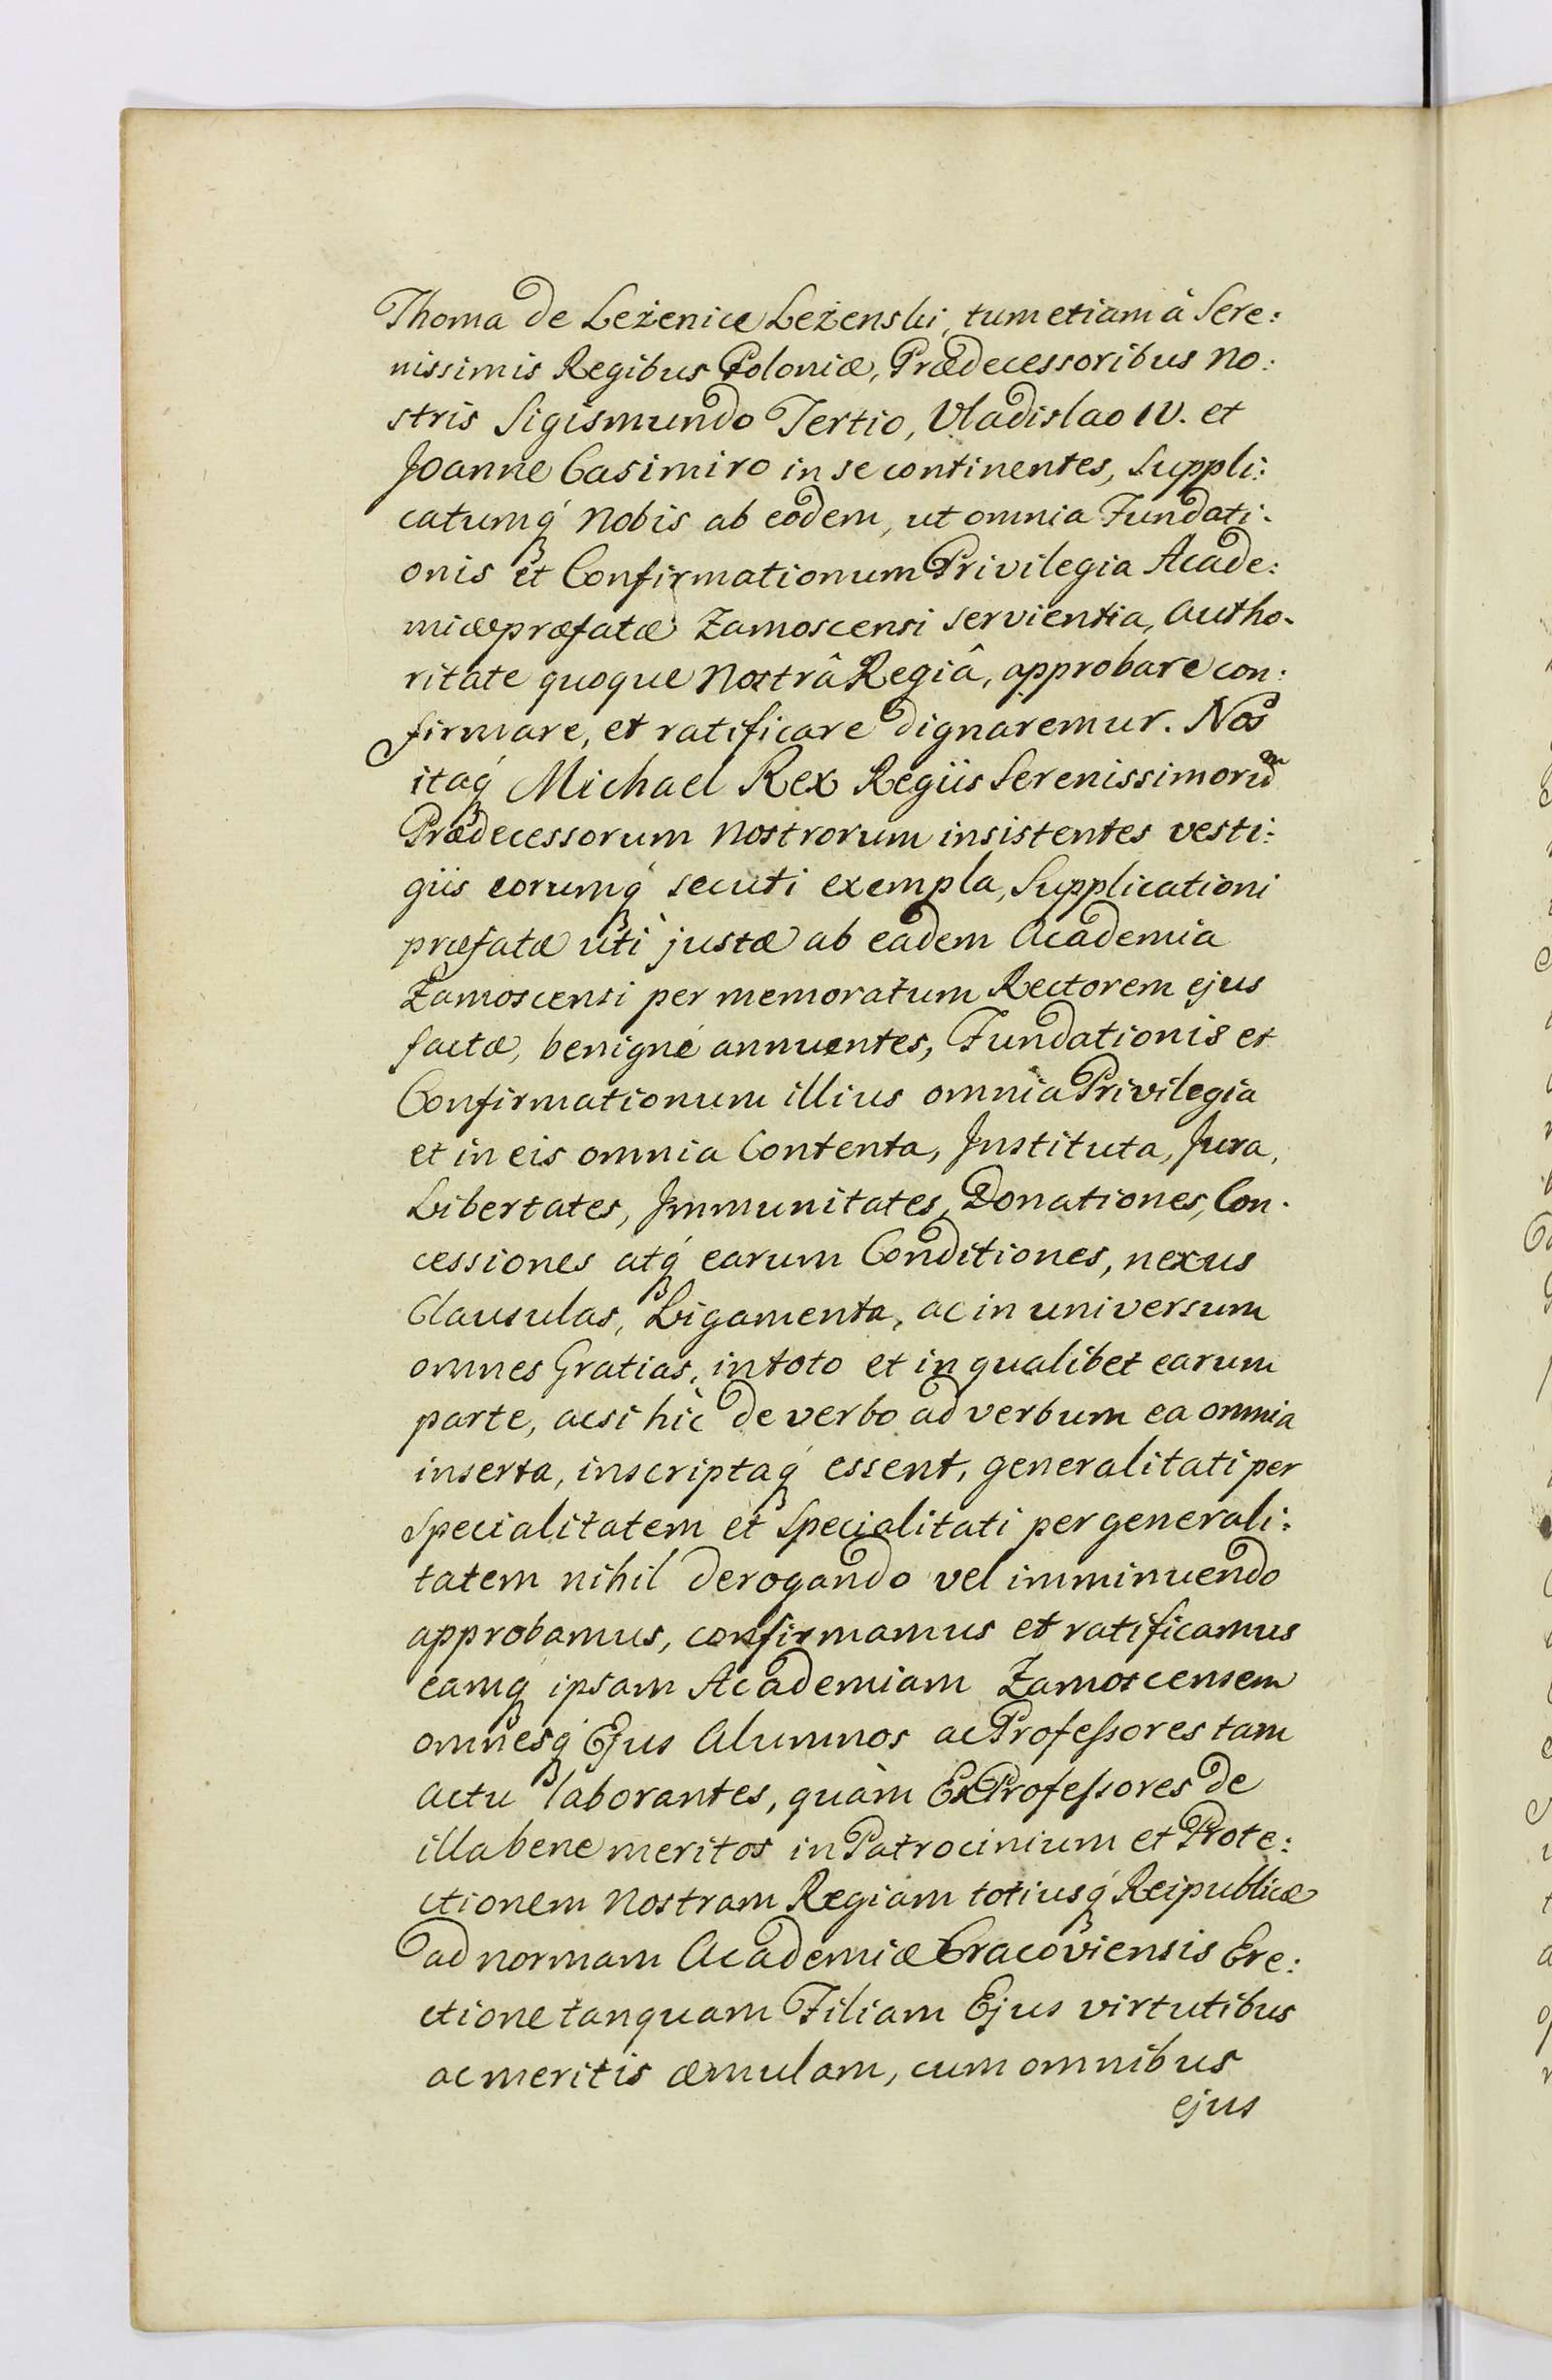 Thoma de Leżenice Leżenski, tum etiam à Sere:
nissimis Regibus Poloniæ, Prædecessoribus No:
stris Sigismundo Tertio, Vladislao IV. et
Joanne Casimiro in se continentes, Suppli:
catumq́ Nobis ab eodem, ut omnia Fundati:
onis et Confirmationum Privilegia Acade:
miæ præfatæ Zamoscensi servientia, Autho:
ritate quoque Nostrâ Regiâ, approbare con:
firmare, et ratificare dignaremur. Nos
itaq́ Michael Rex Regiis Serenissimorũ
Prædecessorum Nostrorum insistentes vesti:
giis eorumq́ secuti exempla, Supplicationi
præfatæ uti justæ ab eadem Academia
Zamoscensi per memoratum Rectorem ejus
factæ, benigné annuentes, Fundationis et
Confirmationum illius omnia Privilegia
et in eis omnia Contenta, Instituta, Jura,
Libertates, Immunitates, Donationes, Con:
cessiones atq́ earum Conditiones, nexus
Clausulas, Ligamenta, ac in universum
omnes Gratias, in toto et in qualibet earum
parte, acsi hîc de verbo ad verbum ea omnia
inserta, inscriptaq́ essent, generalitati per
Specialitatem et Specialitati per generali:
tatem nihil derogando vel imminuendo
approbamus, confirmamus et ratificamus
eamq́ ipsam Academiam Zamoscensem
omnesq́ Ejus Alumnos ac Professores tam
actu laborantes, quàm ExProfessores de
illa bene meritos in Patrocinium et Prote:
ctionem Nostram Regiam totiusq́ Reipublicæ
ad normam Academiæ Cracoviensis Ere:
ctione tanquam Filiam Ejus virtutibus
ac meritis æmulam, cum omnibus
ejus